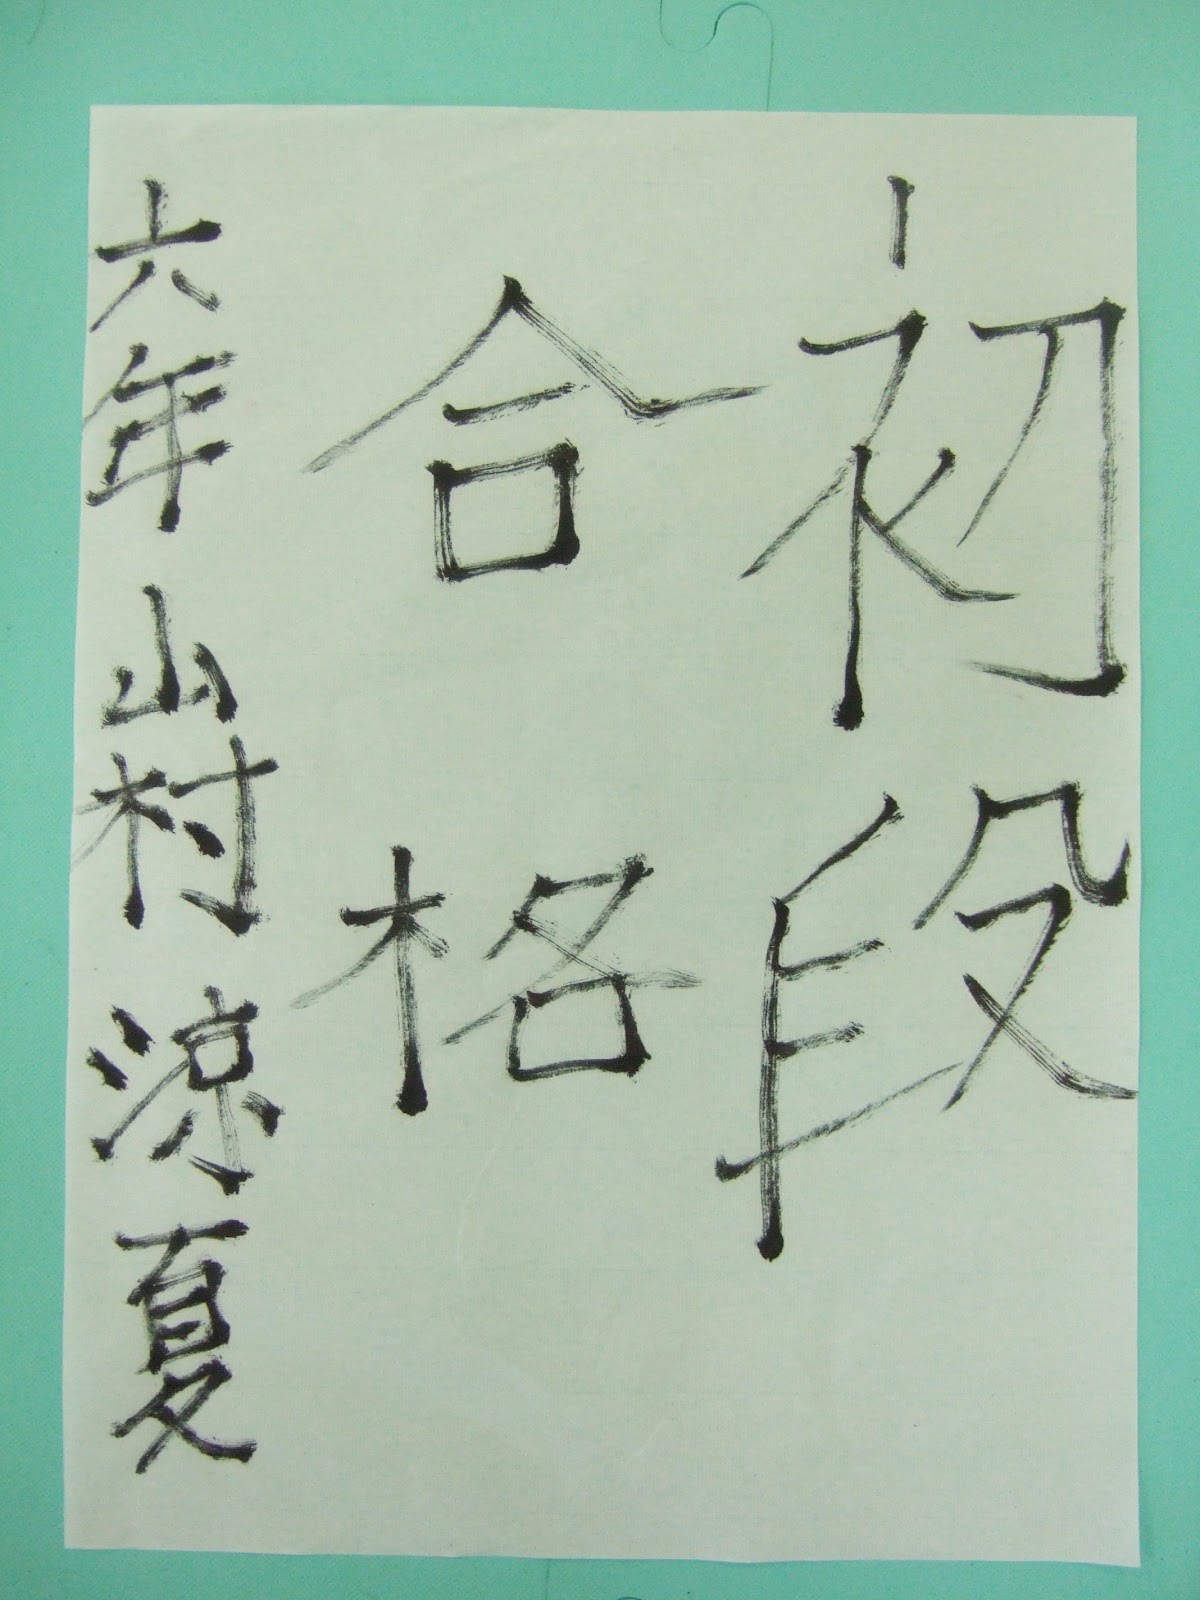 初段
合格
六年 山村 涼夏